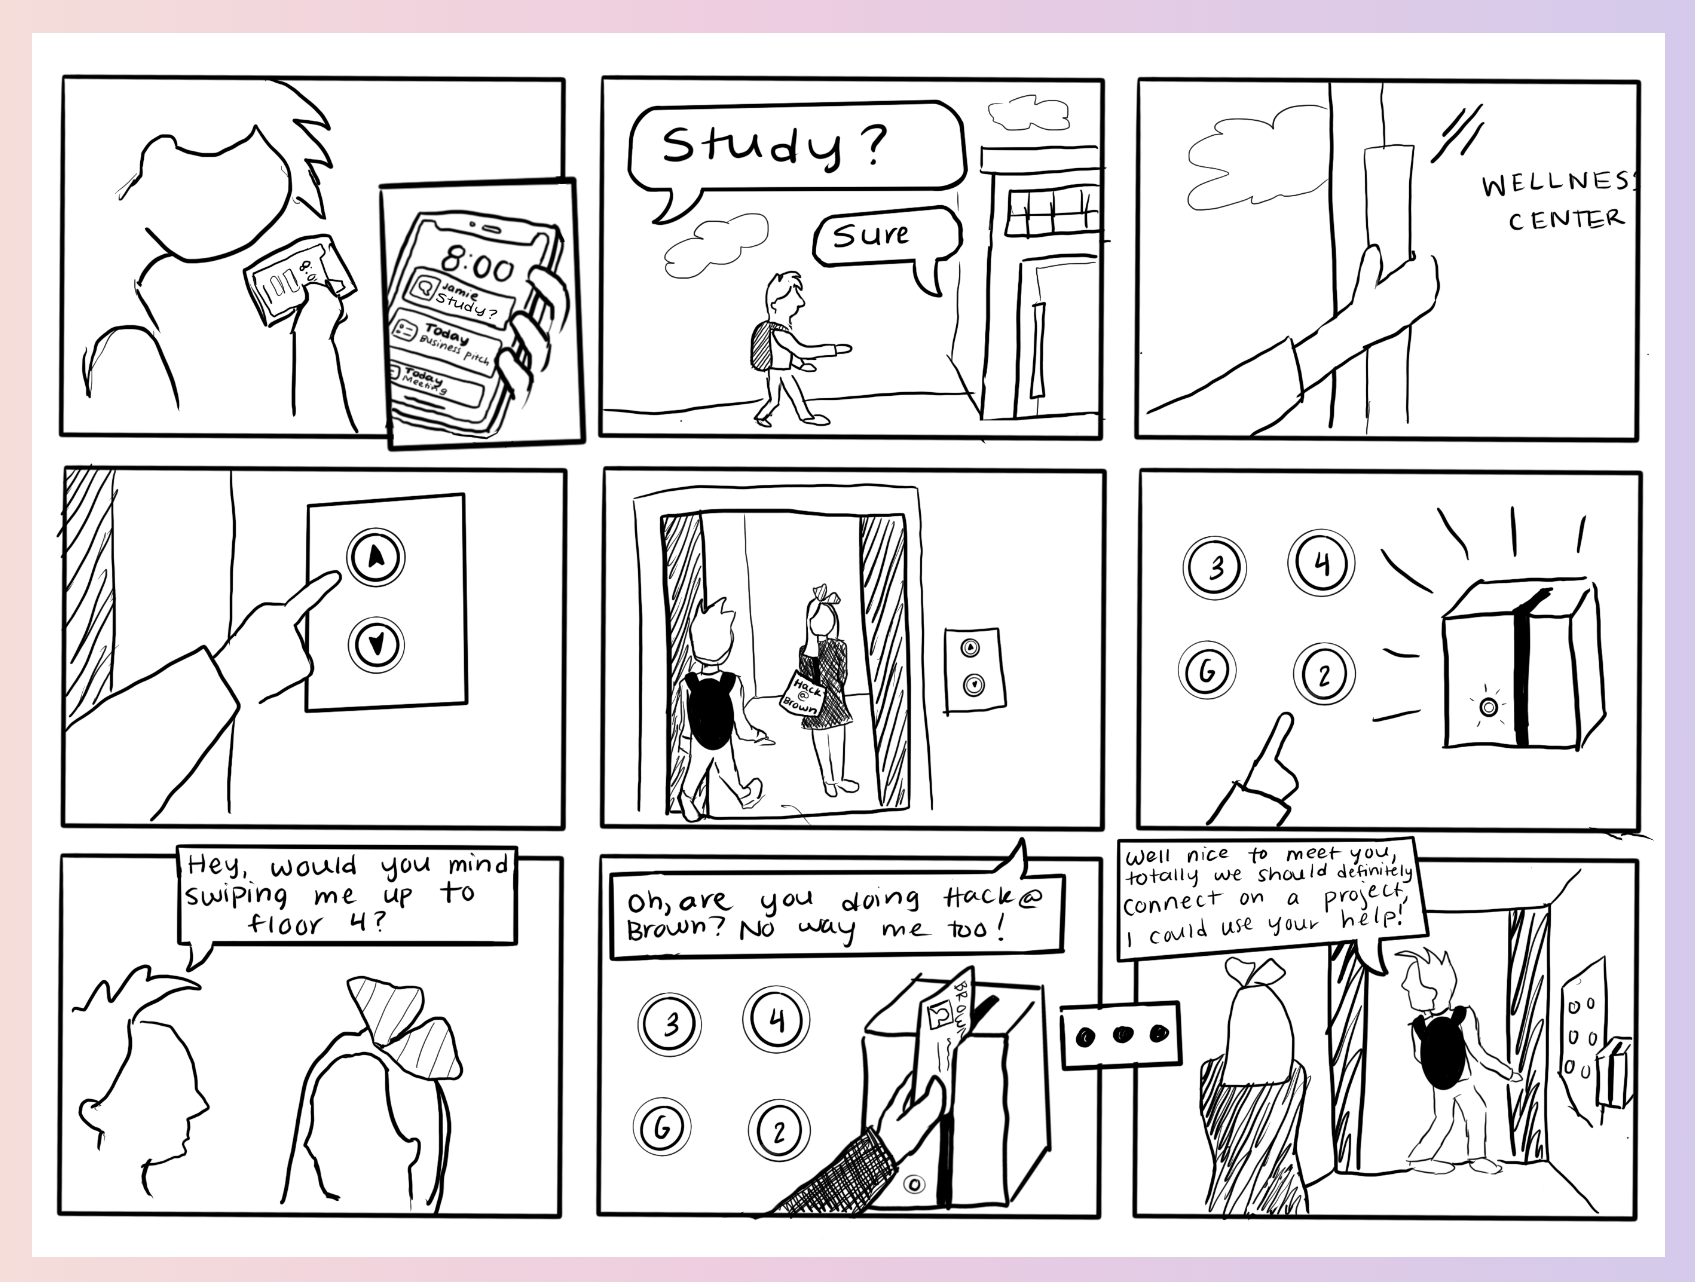 8:00
Jamie
Study?
Today
Business pitch
Today
Meeting
Study?
Sure
WELLNESS
CENTER
Hack
@
Brown
3
4
G
2
Hey, would you mind
swiping me up to
floor 4?
Oh, are you doing Hack@
Brown? No way me too!
3
4
G
2
BROWN
Well nice to meet you,
totally we should definitely
connect on a project,
I could use your help!